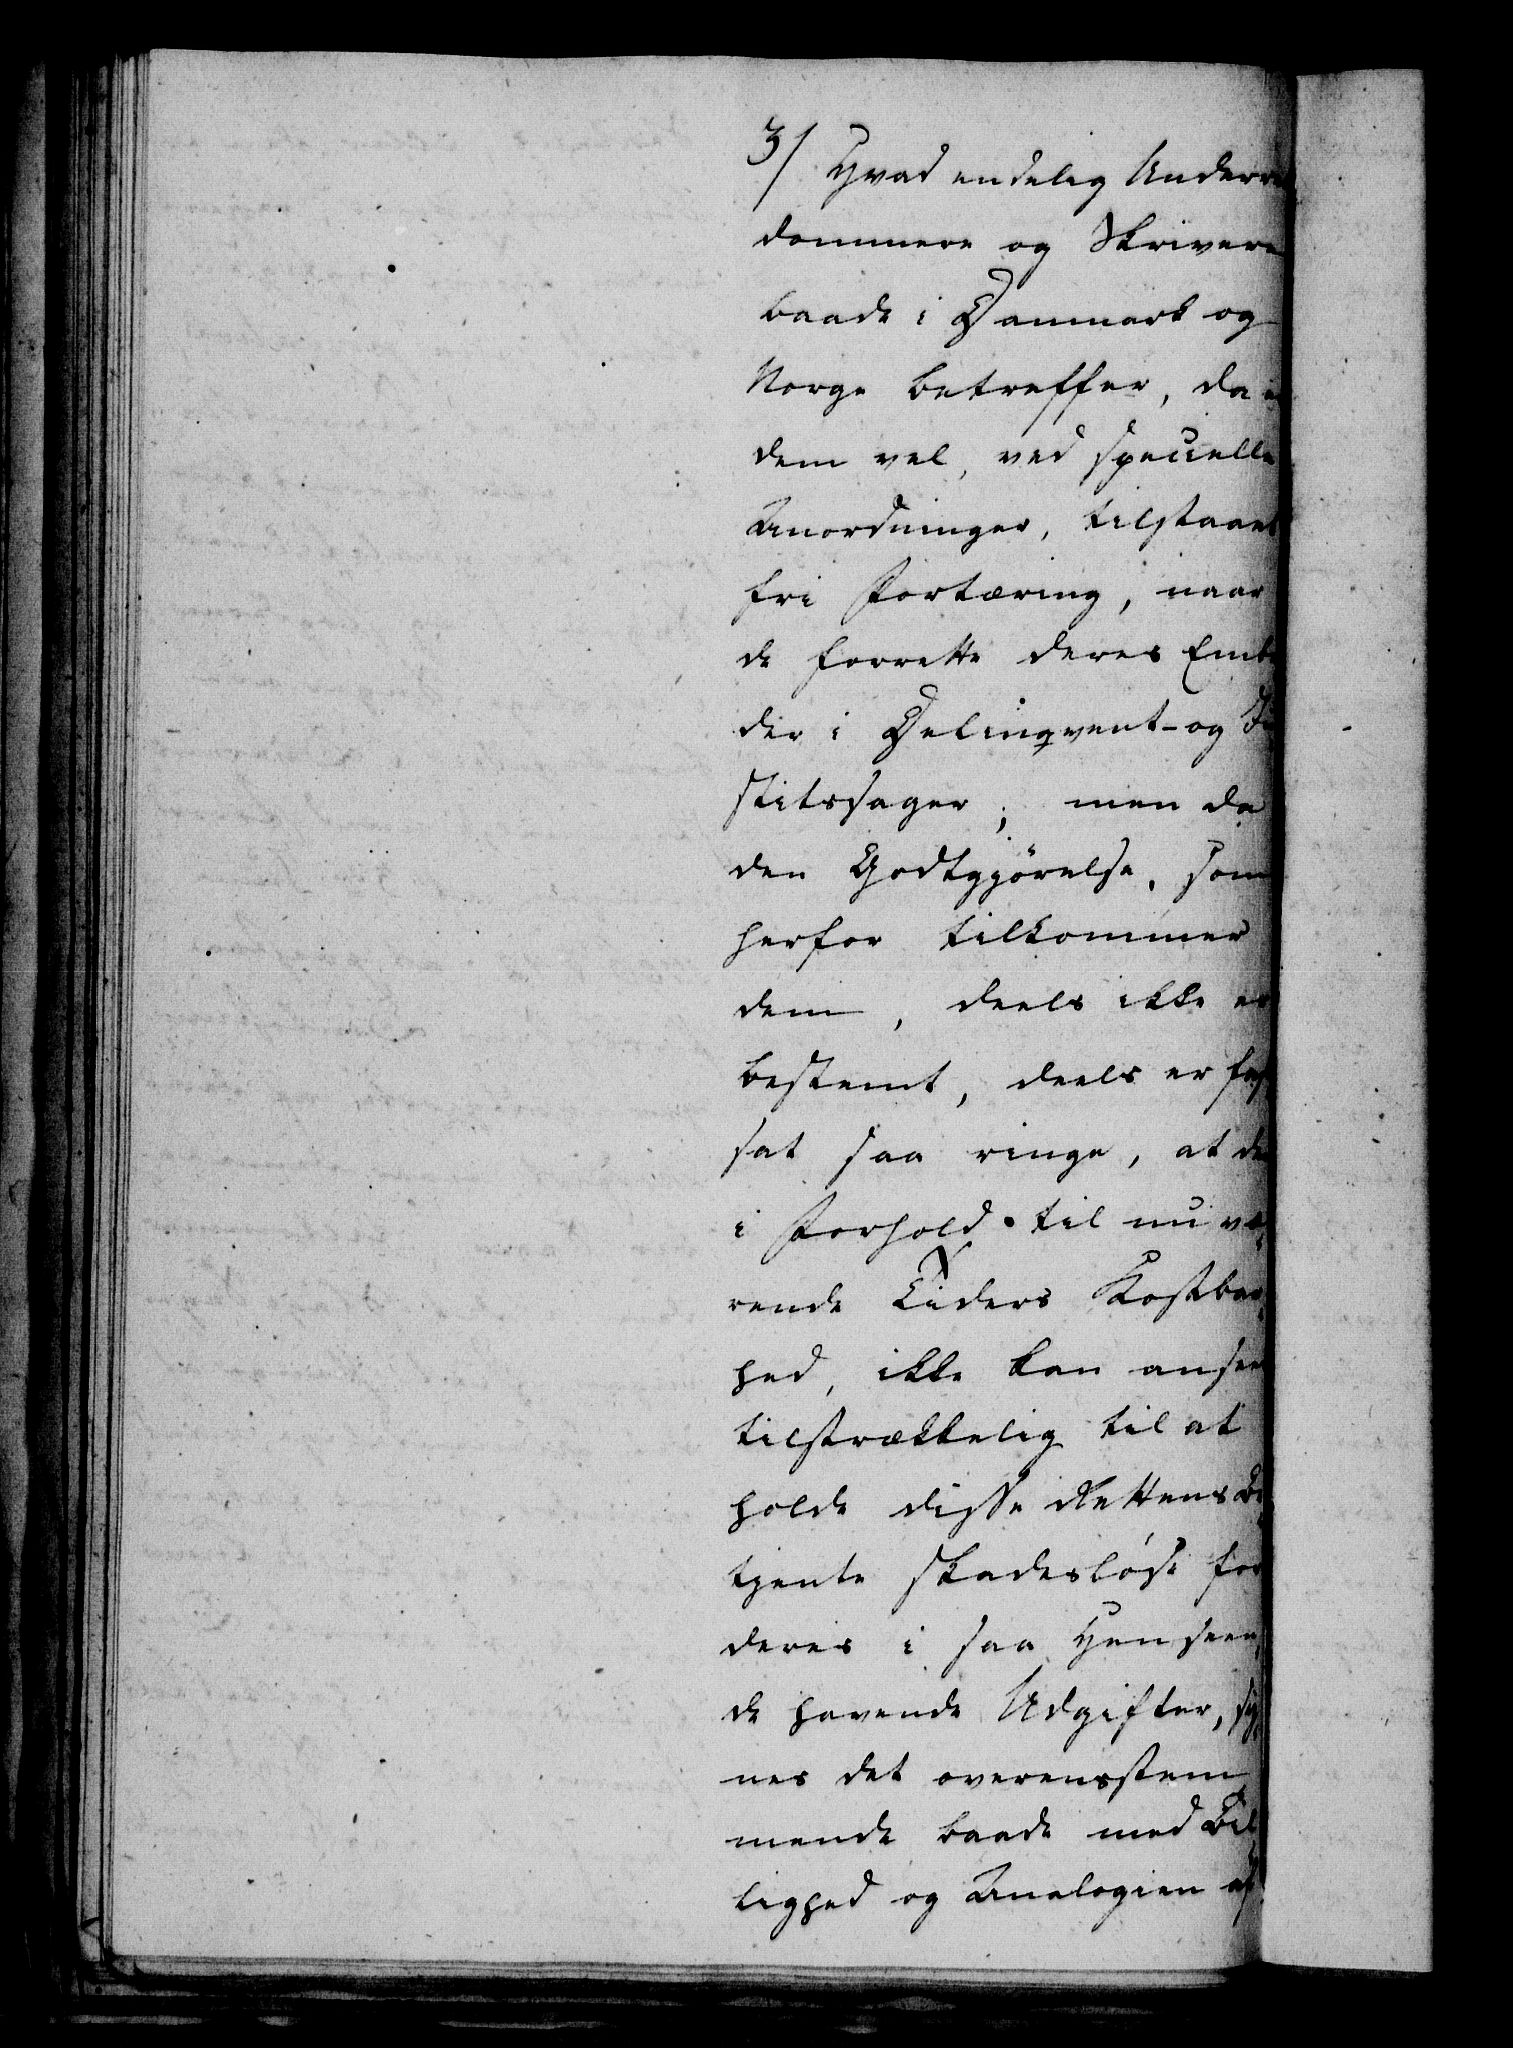 3/ Hvad endelig Underret
dommere og Skrivere
baade i Danmark og
Norge betreffer, da er
dem vel, ved specielle
Anordninger, tilstaaet
fri Fortæring, naar
de forrette deres Embe
der i Delinqvent- og Ju
stitssager; men da
den Godtgjörelse, som
herfor tilkommer
dem, deels ikke er
bestemt, deels er fast
sat saa ringe, at den
i Forhold til nu væ
rende Tiders Kostbar
hed, ikke kan ansees
tilstrækkelig til at
holde disse Rettens Be
tjente skadesløse for
deres i saa Henseen
de havende Udgifter, sy
nes det overensstem
mende baade med Bil
lighed og Analogien af